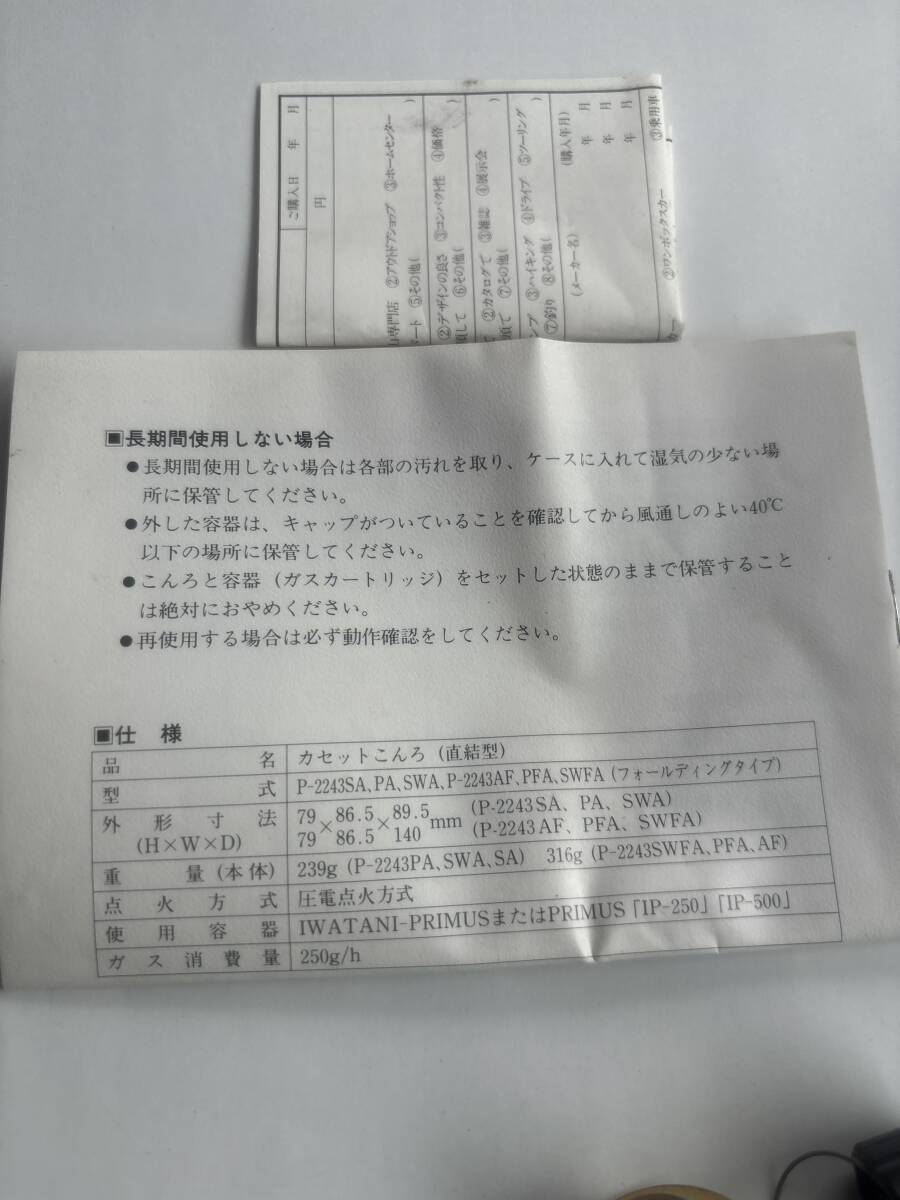 ご購入日　年　月
円
山専門店 ②アウトドアショップ ③ホームセンター
ート ⑤その他(　)
②デザインの良さ ③コンパクト性 ④価格
頼して ⑥その他(　)
②カタログで ③雑誌 ④展示会
頂て ⑦その他(　)
ンプ ③ハイキング ④ドライブ ⑤ツーリング
⑦釣り ⑧その他(　)
(メーカー名)　(購入年月)
年　月
年　月
年　月
カー ②ワンボックスカー ③乗用車
■長期間使用しない場合
●長期間使用しない場合は各部の汚れを取り、ケースに入れて湿気の少ない場
所に保管してください。
●外した容器は、キャップがついていることを確認してから風通しのよい40℃
以下の場所に保管してください。
●こんろと容器（ガスカートリッジ）をセットした状態のままで保管すること
は絶対におやめください。
●再使用する場合は必ず動作確認をしてください。
■仕　様
品名　カセットこんろ（直結型）
型式　P-2243SA, PA, SWA, P-2243AF, PFA, SWFA（フォールディングタイプ）
外形寸法　79×86.5×89.5mm（P-2243SA、PA、SWA）
(H×W×D)　79×86.5×140mm（P-2243AF、PFA、SWFA）
重量（本体）　239g（P-2243PA, SWA, SA）　316g（P-2243SWFA, PFA, AF）
点火方式　圧電点火方式
使用容器　IWATANI-PRIMUSまたはPRIMUS「IP-250」「IP-500」
ガス消費量　250g/h